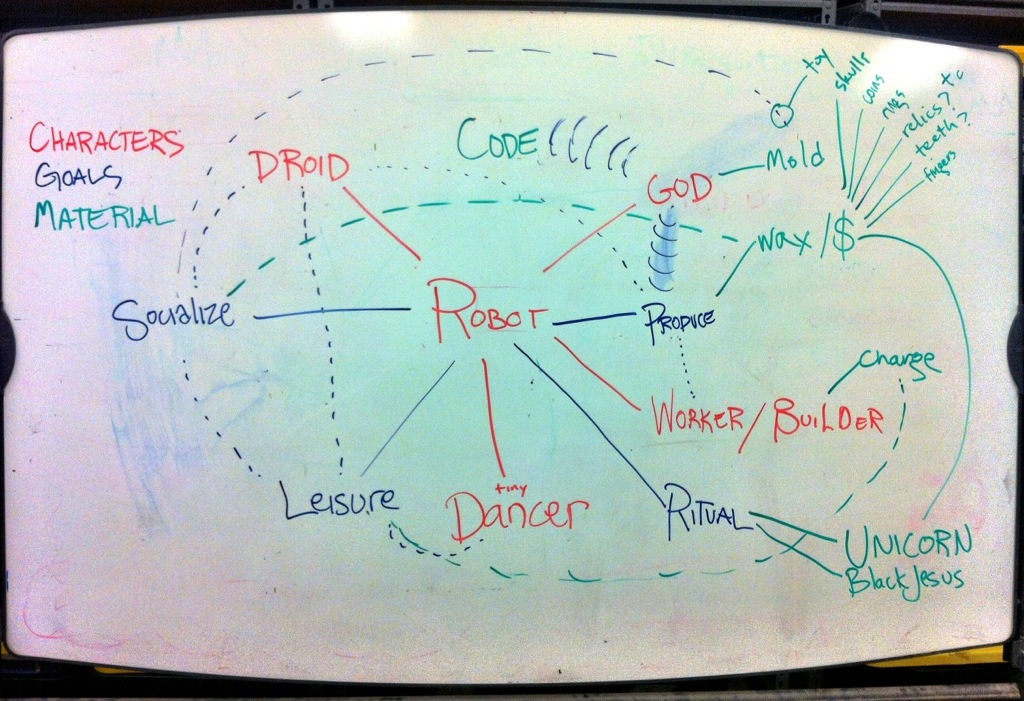 CHARACTERS
GOALS
MATERIAL
DROID
CODE
GOD
Mold
toy
skulls
coins
rings
relics?
teeth?
fingers
wax/$
Socialize
ROBOT
PRODUCE
Charge
WORKER/BUILDER
Leisure
tiny
Dancer
RITUAL
UNICORN
Black Jesus